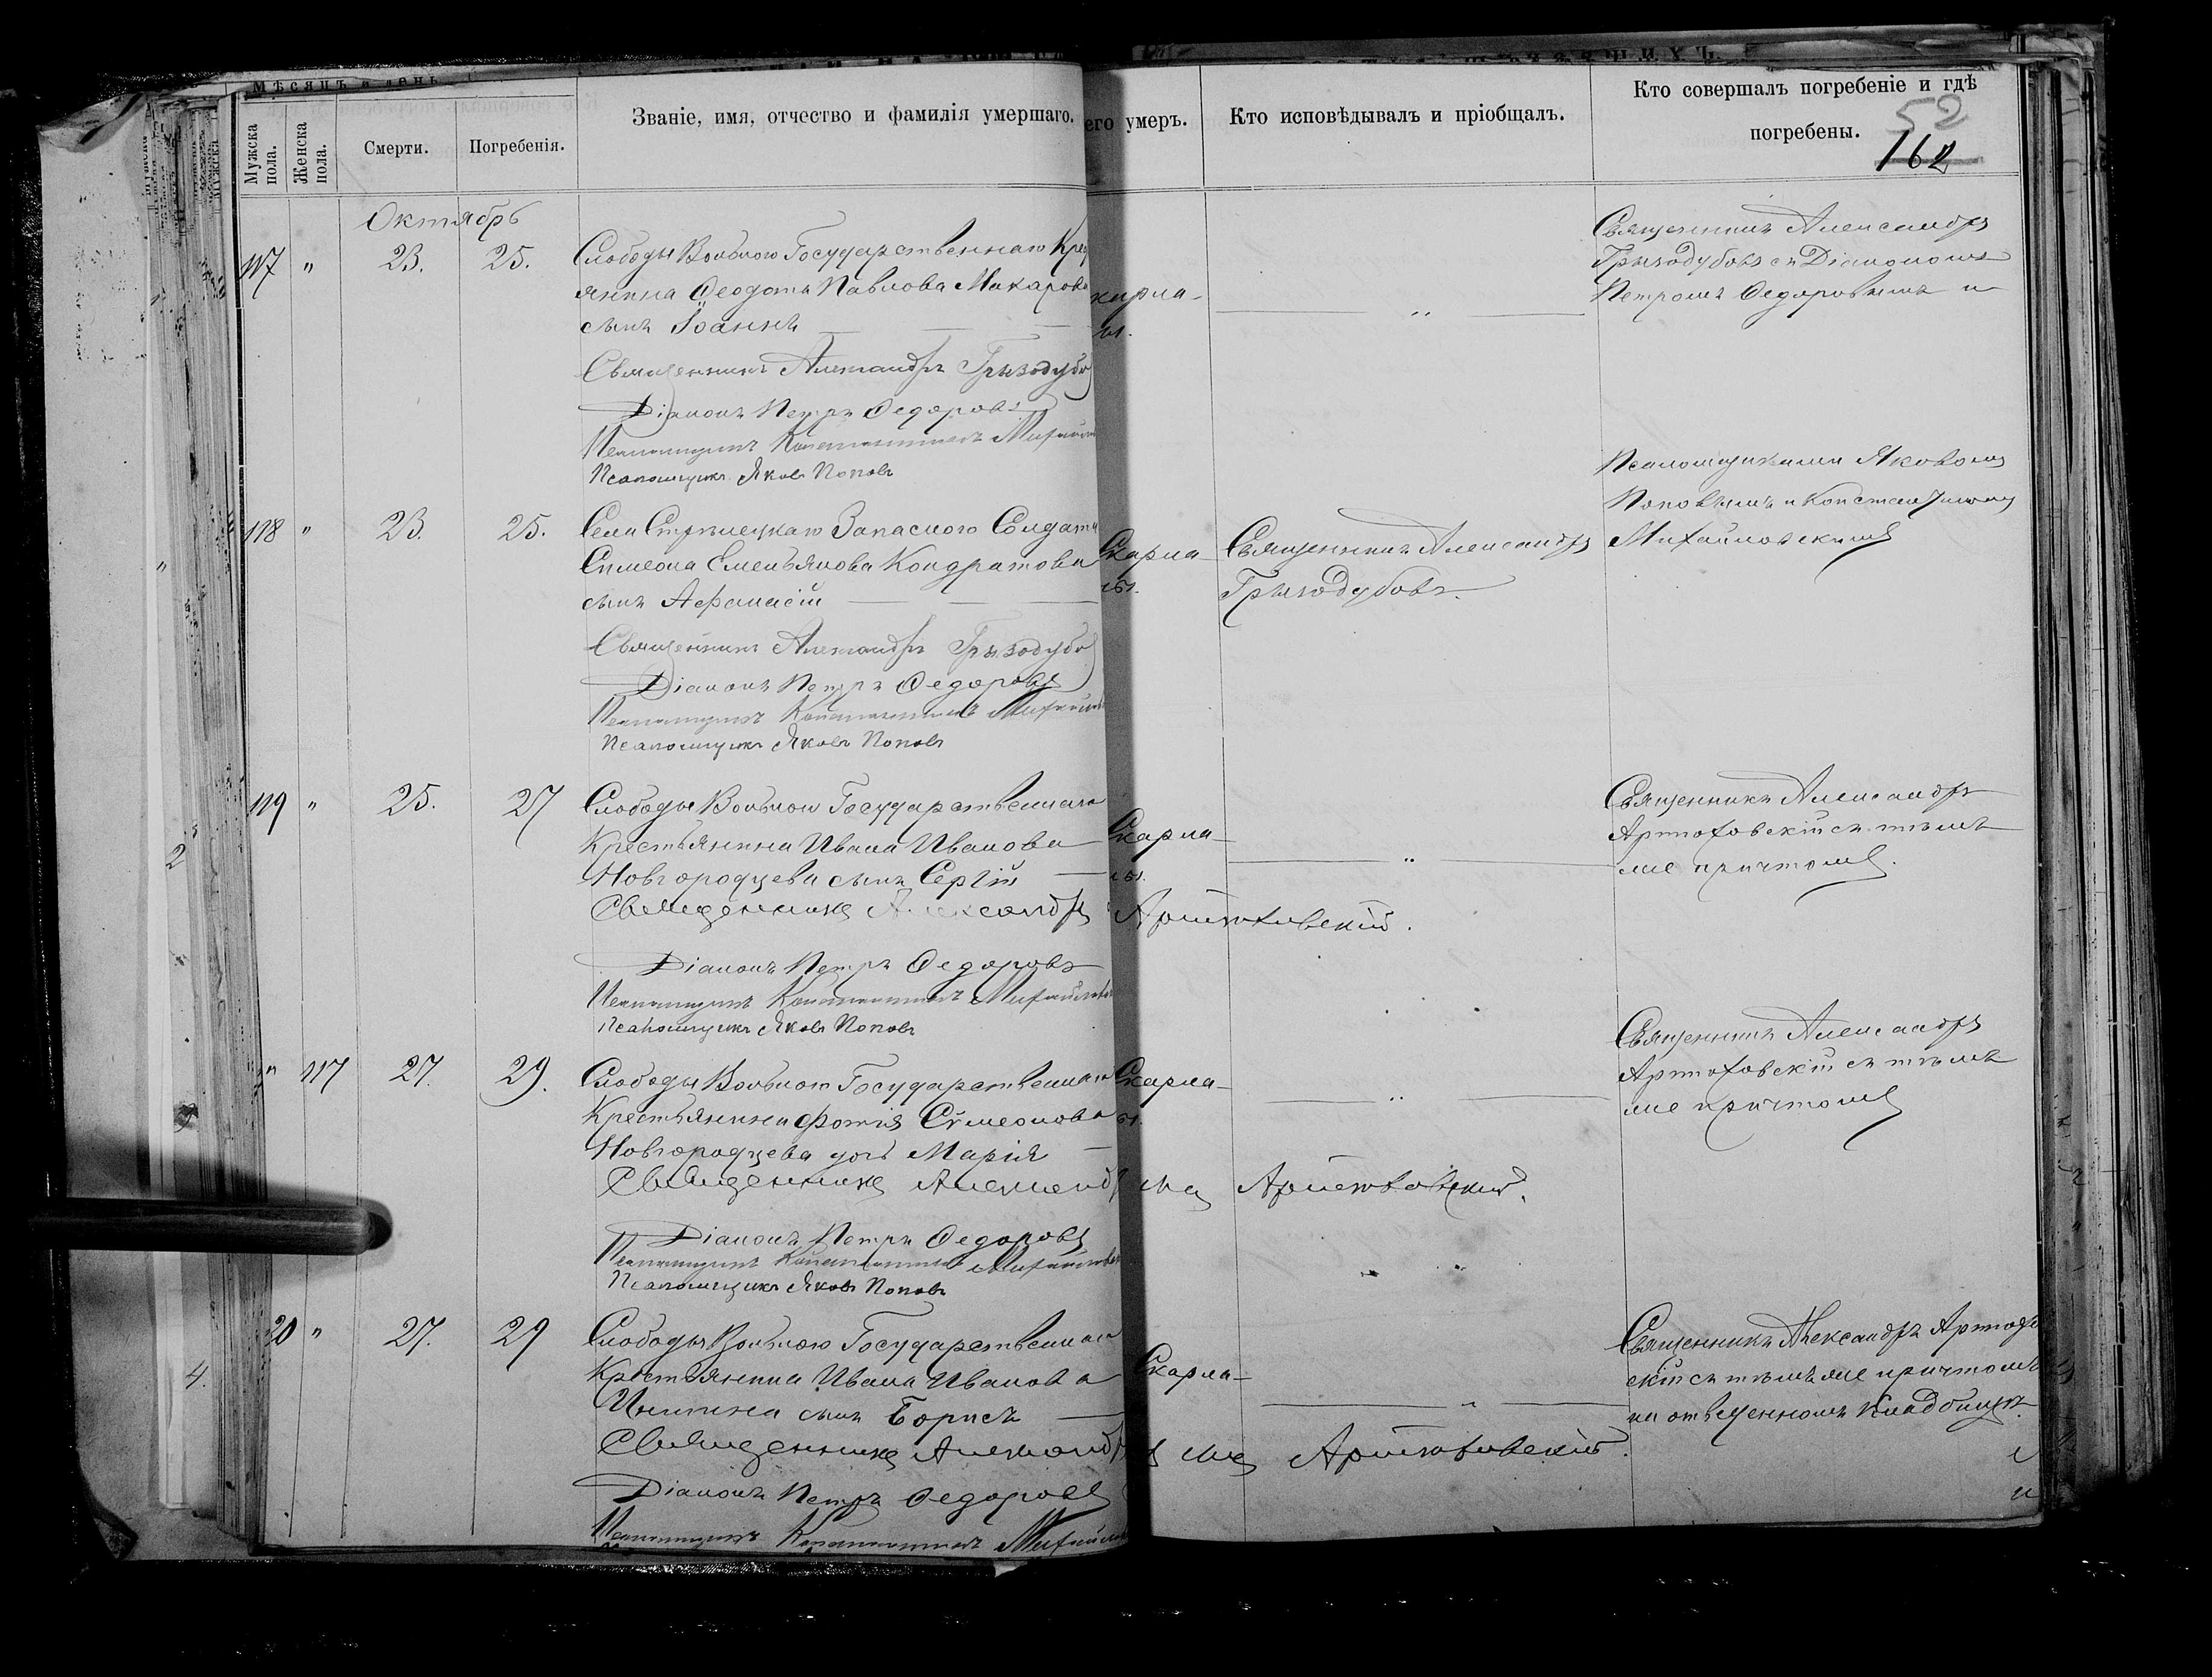 Мѣсяцъ и день
Мужска пола.
Женска пола.
Смерти.
Погребенія.
Званіе, имя, отчество и фамилія умершаго.
его умеръ.
Кто исповѣдывалъ и пріобщалъ.
Кто совершалъ погребеніе и гдѣ
погребены.
52
162
Октябрь
117 " 23. 25.
Слободы Вольной Государственнаго Крес
янина Ѳеодота Павлова Макарова
сынъ Іоаннъ
карла-
ны.
"
Священникъ Александръ
Грызодубовъ съ Діакономъ
Петромъ Ѳедоровымъ и
Священникъ Александръ Грызодубо
Діаконъ Петръ Ѳедоровъ
Псаломщикъ Константинъ Михайло
Псаломщикъ Яковъ Поповъ
Псаломщиками Яковомъ
Поповымъ и Константиномъ
Михайловскимъ
118 " 23. 25.
Села Стрѣлецкаго Запаснаго Солдата
Симеона Емельянова Кондратова
сынъ Аѳанасій
Скарла-
ны.
Священникъ Александръ
Грызодубовъ.
Священникъ Александръ Грызодубо
Діаконъ Петръ Ѳедоровъ
Псаломщикъ Константинъ Михайлов
Псаломщикъ Яковъ Поповъ
119 " 25. 27
Слободы Вольной Государственнаго
Крестьянина Ивана Иванова
Новгородцева сынъ Сергій
Скарла-
ны.
"
Священникъ Александръ
Артюховскій съ тѣмъ
же причтомъ.
Священникъ Александръ Артюховскій.
Діаконъ Петръ Ѳедоровъ
Псаломщикъ Константинъ Михайлов
Псаломщикъ Яковъ Поповъ
" 117 27. 29.
Слободы Вольной Государственнаго
Крестьянина Фотія Симеонова
Новгородцева дочь Марія
Скарла-
"
Священникъ Александръ
Артюховскій съ тѣмъ
же причтомъ
Священникъ Александръ Артюховскій.
Діаконъ Петръ Ѳедоровъ
Псаломщикъ Константинъ Михайлов
Псаломщикъ Яковъ Поповъ
20 " 27. 29
Слободы Вольной Государственнаго
Крестьянина Ивана Иванова
сынъ Борисъ
Скарла-
"
Священникъ Александръ Артюхо
скій съ тѣмъ же причтомъ
на отведенномъ кладбищѣ.
Священникъ Александръ Артюховскій.
Діаконъ Петръ Ѳедоровъ
Псаломщикъ Константинъ Михайлов
2
4.